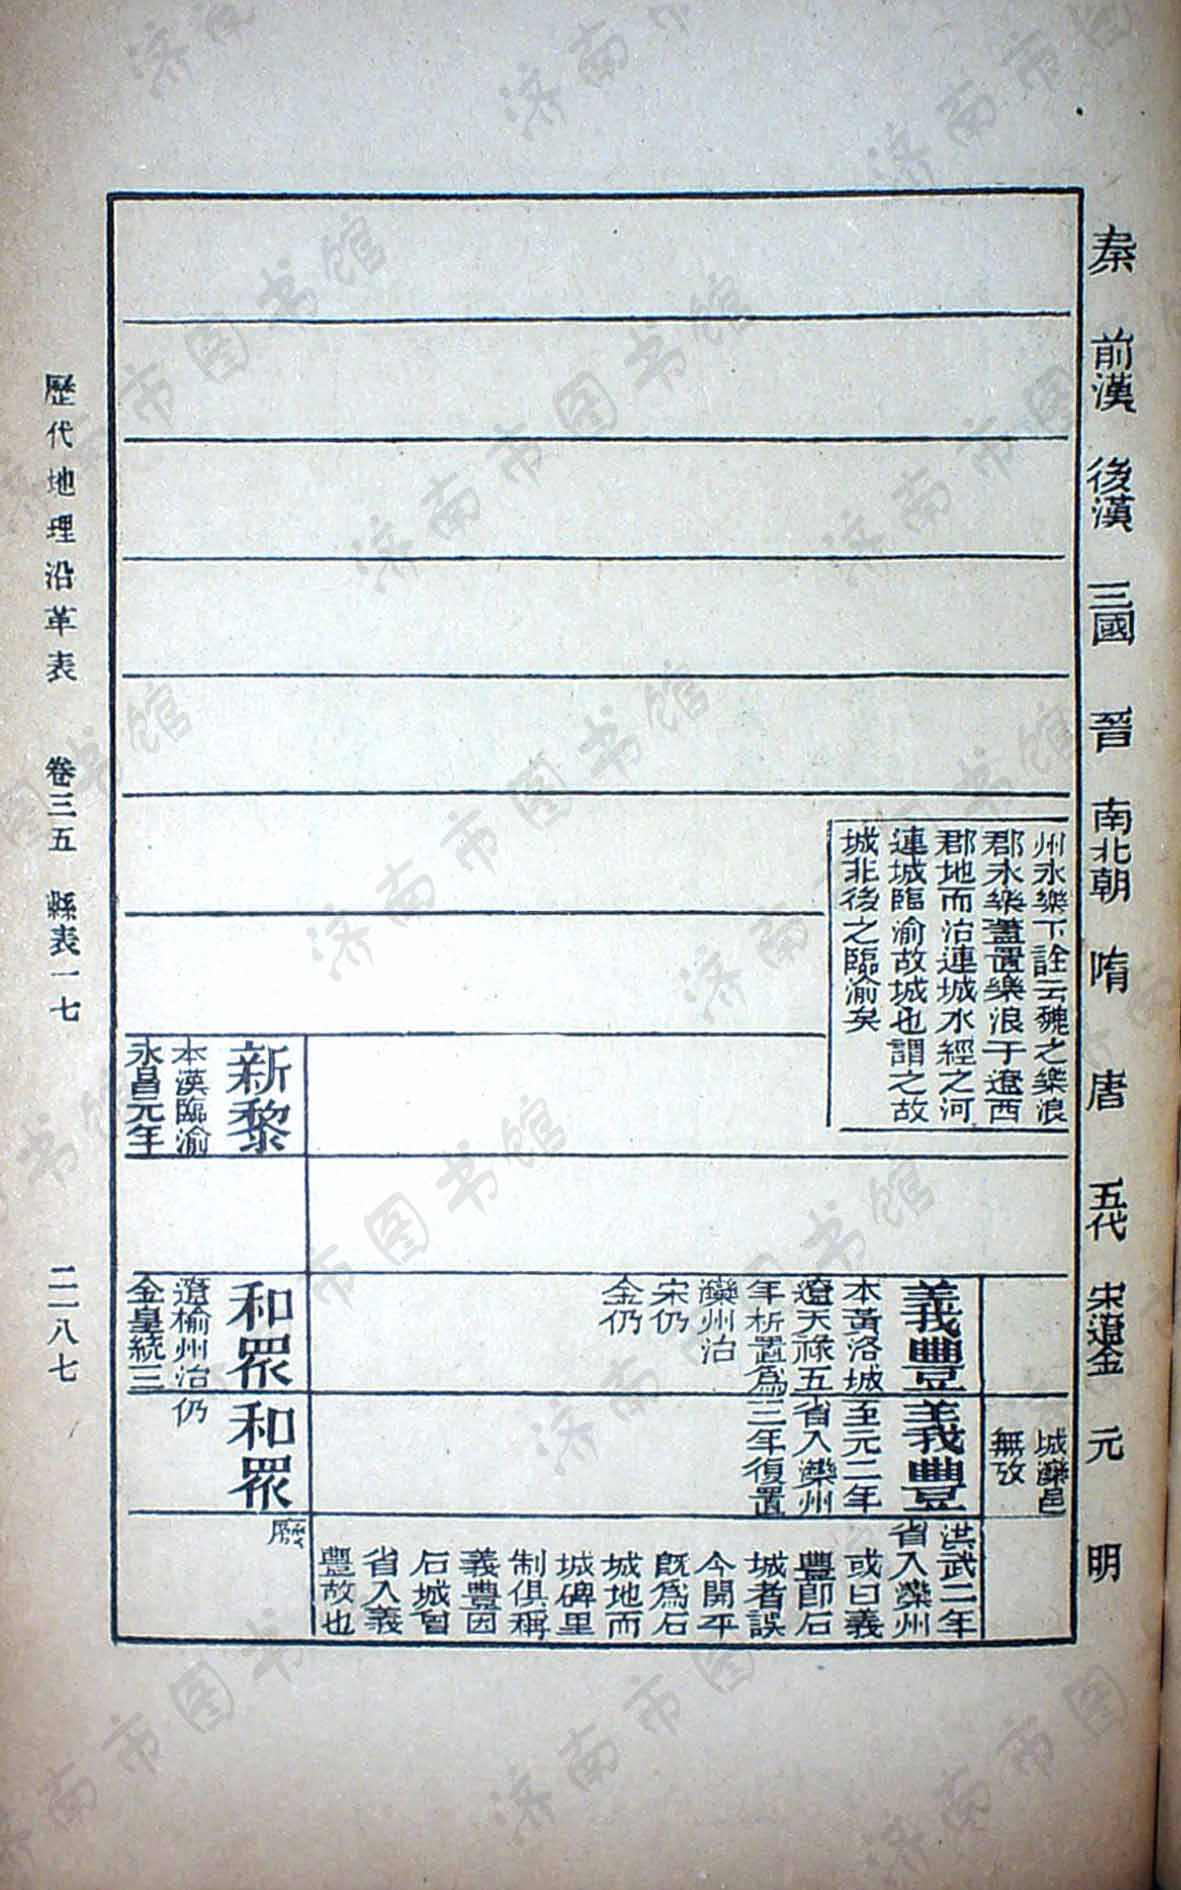 秦
前漢
後漢
三國
晉
南北朝
隋
唐
五代
宋遼金
元
明
州永樂下詮云魏之樂浪
郡永樂蓋置樂浪于遼西
郡地而治連城水經之河
連城臨渝故城也謂之故
城非後之臨渝矣
城灤邑
無攷
義豐
本黃洛城
遼天祿五
年析置為
灤州治
宋仍
金仍
義豐
至元二年
省入灤州
三年復置
洪武二年
省入灤州
或曰義
豐即石
城者誤
今開平
既為石
城地而
城碑里
制俱稱
義豐因
石城曾
省入義
豐故也
新黎
本漢臨渝
永昌元年
和眾
遼榆州治
金皇統三
和眾
仍
廢
歷代地理沿革表 卷三五 縣表一七 二一八七
济南市图书馆